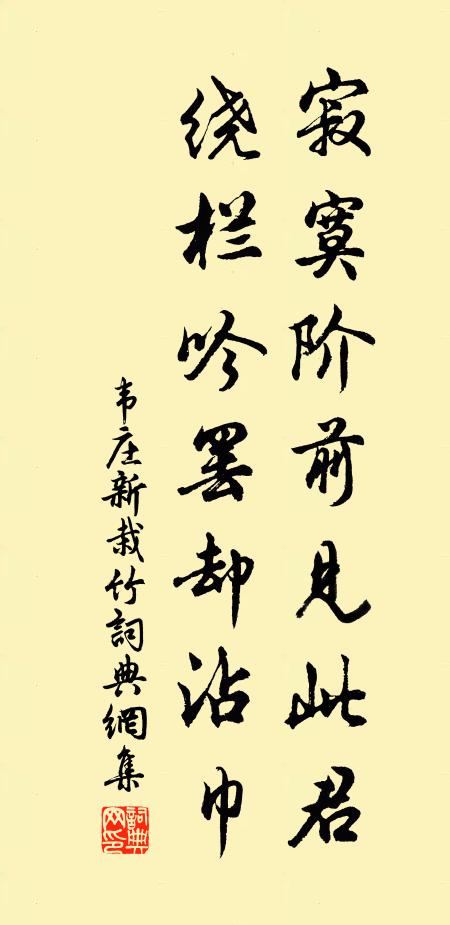 寂寞阶前见此君
绕栏吟罢却沾巾
韦庄新栽竹詞典網集
詞典网印